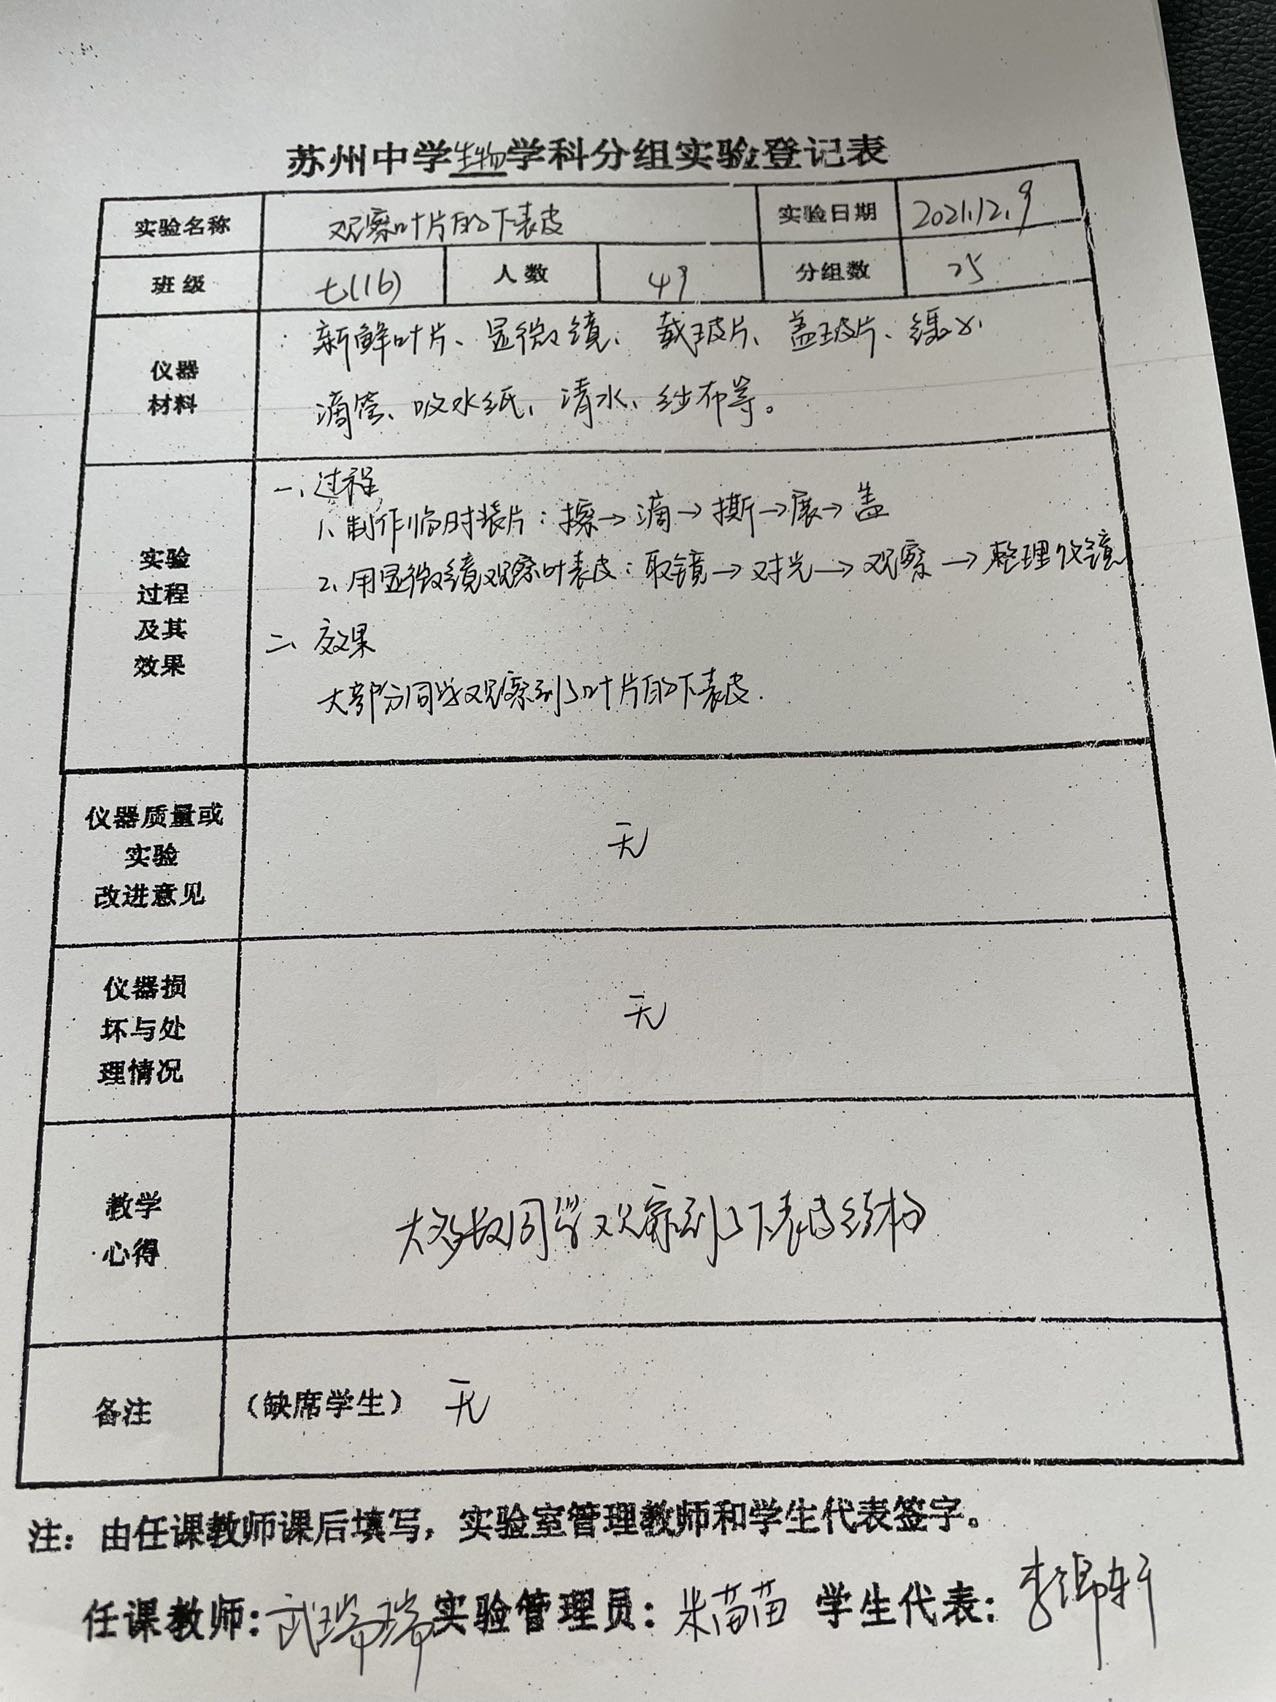 苏州中学生物学科分组实验登记表
实验名称 观察叶片的下表皮 实验日期 2021.12.9
班级 七(16) 人数 49 分组数 25
仪器
材料
新鲜叶片、显微镜、载玻片、盖玻片、镊子、
滴管、吸水纸、清水、纱布等。
实验
过程
及其
效果
一、过程
1、制作临时装片：擦→滴→撕→展→盖
2、用显微镜观察叶表皮：取镜→对光→观察→整理收镜
二、效果
大部分同学观察到了叶片的下表皮.
仪器质量或
实验
改进意见
无
仪器损
坏与处
理情况
无
教学
心得
大多数同学观察到了下表皮结构
备注 (缺席学生) 无
注：由任课教师课后填写，实验室管理教师和学生代表签字。
任课教师：武瑞瑞 实验管理员：朱苗苗 学生代表：李锦轩